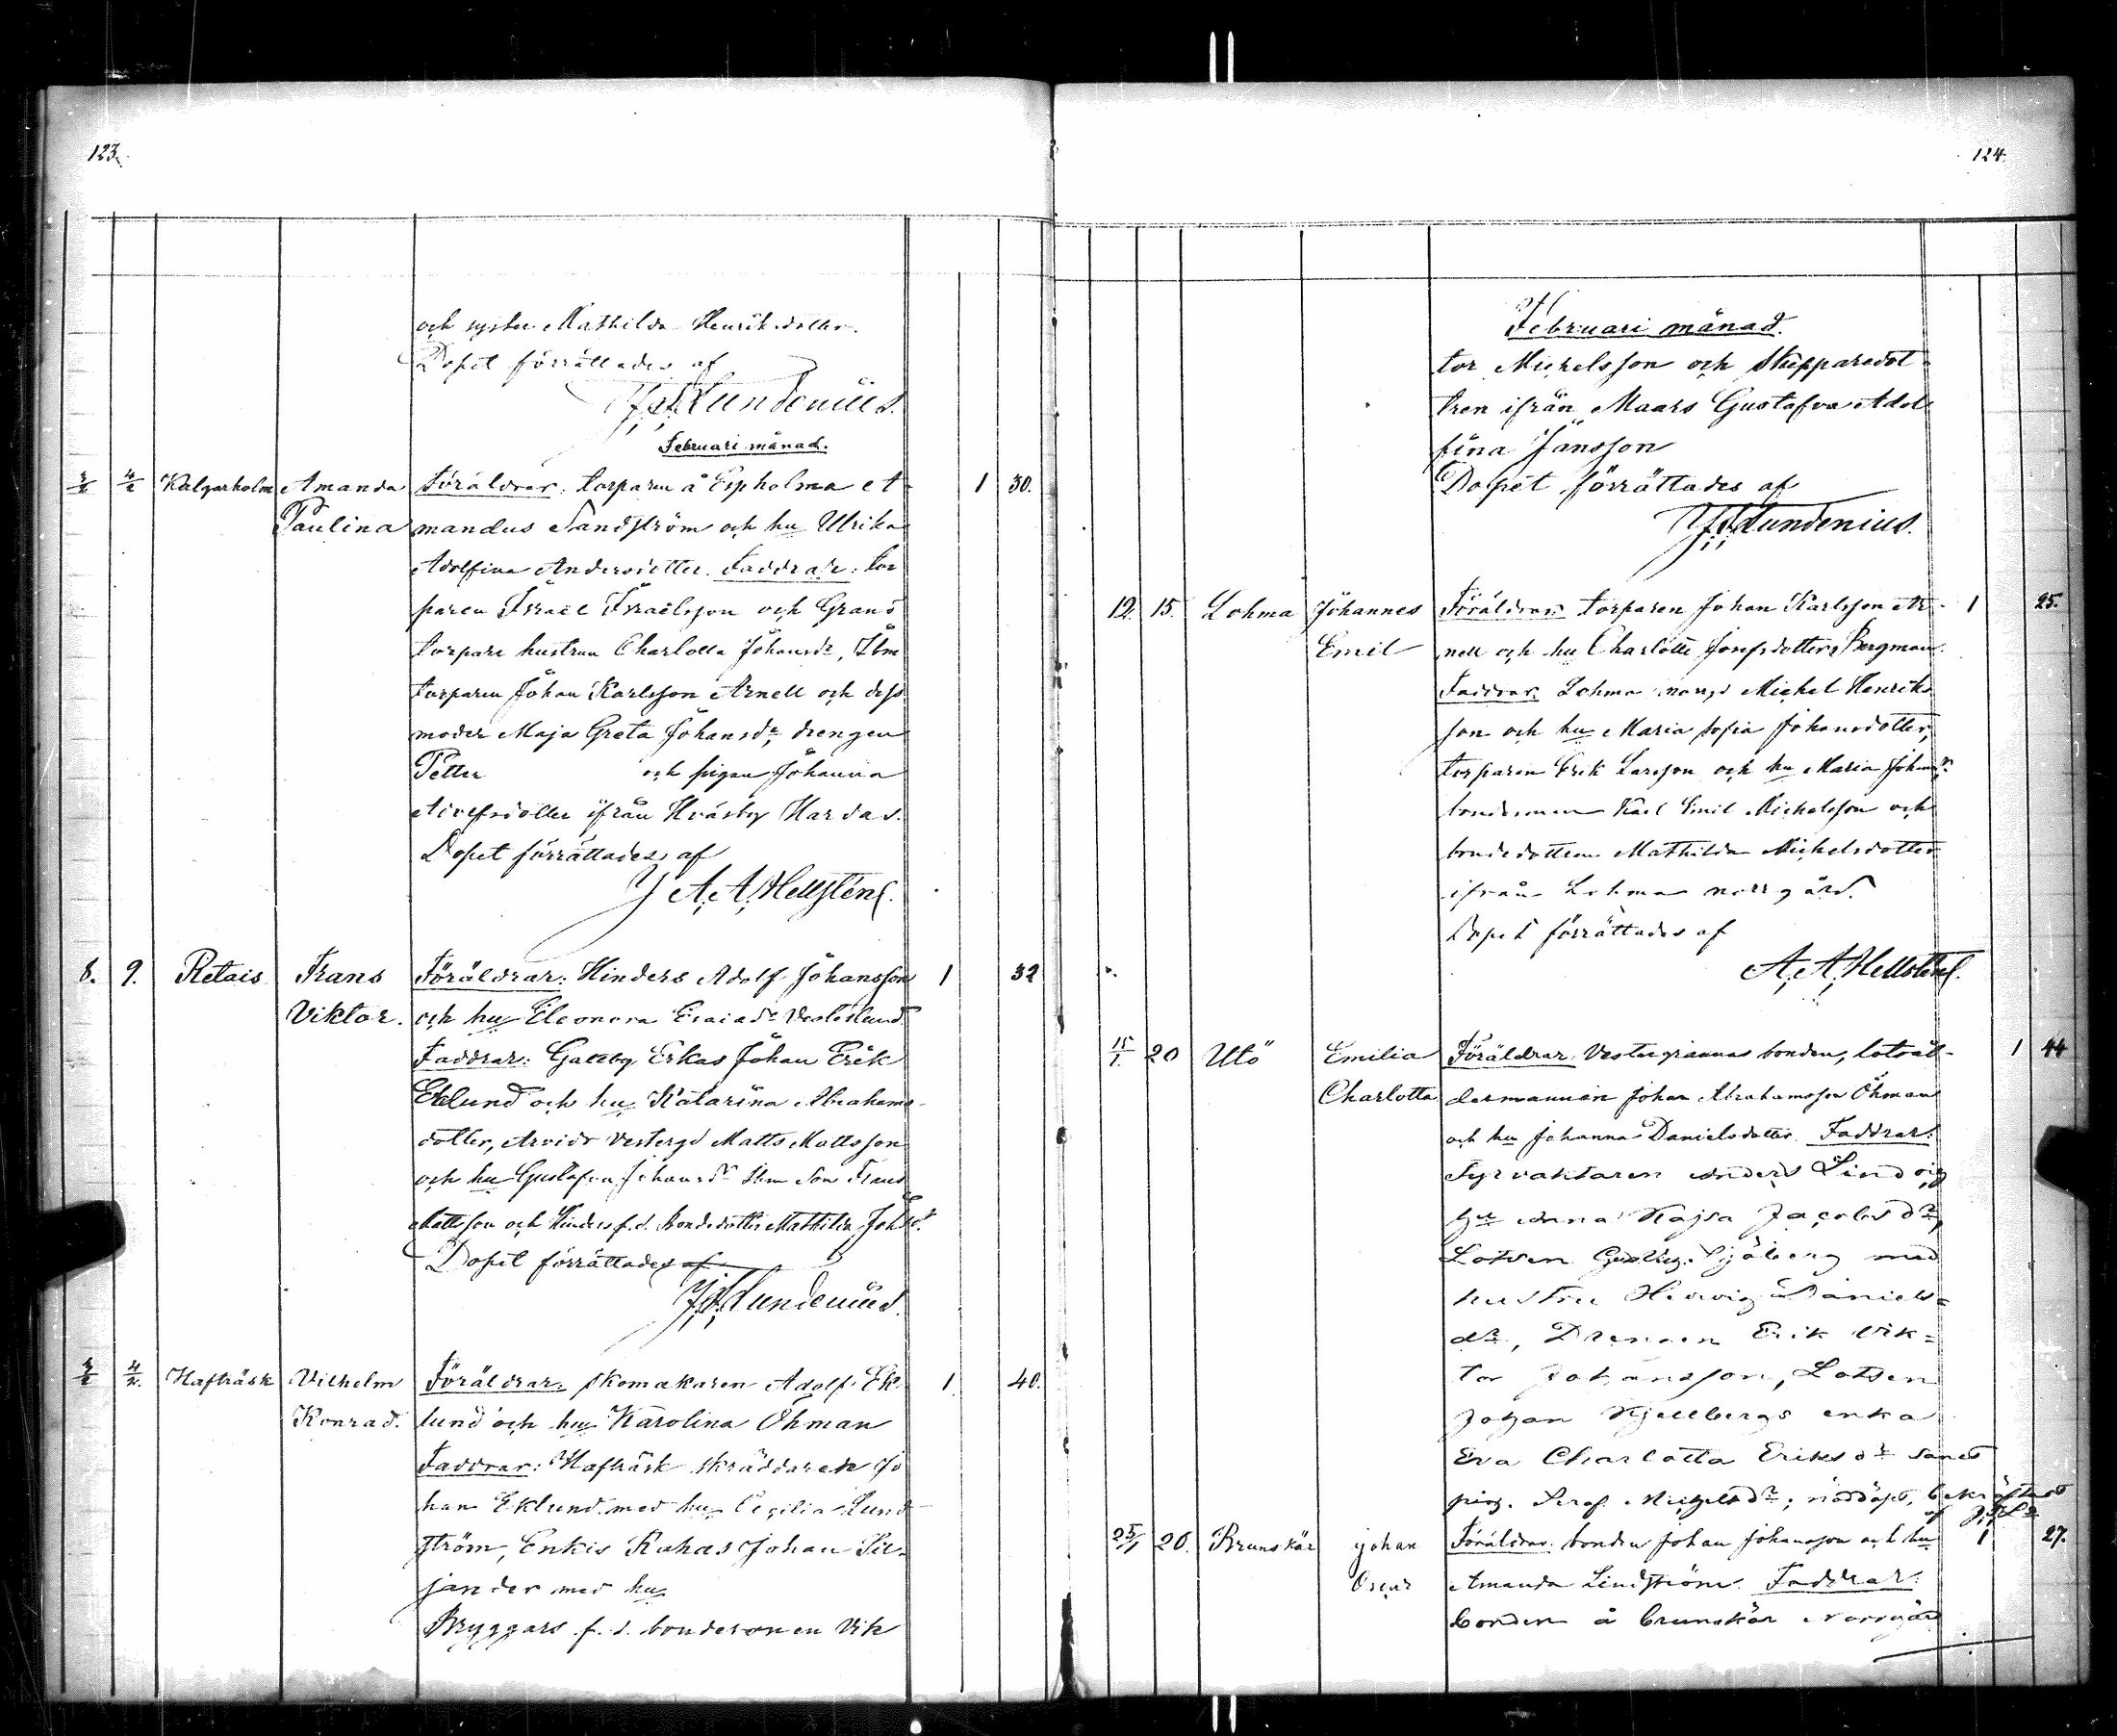 123.
och syster Mathilda Henriksdotter.
Dopet förrättades af
Lundenius.
Februari månad.
3/2 4/2 Kalgarholm Amanda Föräldrar: torparen å Espholma A 1 30.
Paulina mandus Sandström och hu Ulrika
Adolfina Andersdotter. Faddrar: tor
paren Israel Israelsson och Granö
torpare hustrun Charlotta Johansdr,
torparen Johan Karlsson Arnell och dess
moder Maja Greta Johansdr, drengen
Petter och pigan Johanna
dotter ifrån Hvarsby Hardas.
Dopet förrättades af
A. A. Hellstén
8. 9. Retais Frans Föräldrar: Hinders Adolf Johansson 1 32
Viktor. och hu Eleonora Esaiadr Vesterlund
Faddrar: Galtby Erkas Johan Erik
Eklund och hu Katarina Abrahams-
dotter, Arvids Vestergd Matts Mattsson
och hu Gustafva Johansdr Son Frans
Mattsson och Hinders f.d. Bondedotter Mathilda Johsdr.
Dopet förrättades af
Lundenius.
3/2 4/2. Hafträsk Vilhelm Föräldrar: skomakaren Adolf Ek- 1. 40.
Konrad. lund och hu Karolina Öhman
Faddrar: Hafträsk skräddaren Jo
han Eklund med hu Cecilia Lund
ström, Enkis Ruhas Johan Sil-
jander med hu
Bryggars f.d. bondesonen Vik
124.
Februari månad.
tor Michelsson och Skepparedot-
tren ifrån Maars Gustafva Adol
fina Jansson
Dopet förrättades af
Lundenius.
12. 15. Lohma Johannes Föräldrar: torparen Johan Karlsson Ar- 1 25.
Emil nell och hu Charlotte Josefsdotter Bergman.
Faddrar: Lohma norrgd Michel Henriks
son och hu Maria Sofia Johansdotter,
torparen Erik Larsson och hu Maria Johansdr.
bondesonen Karl Emil Michelsson och
bondedottren Mathilda Michelsdotter
ifrån Lohma norrgård.
Dopet förrättades af
A. A. Hellstén
15/1. 20 Utö Emilia Föräldrar: Vestergrannas bonden, lotsål- 1 44
Charlotta dermannen Johan Abrahamsson Öhman
och hu Johanna Danielsdotter. Faddrar:
Fyrvaktaren Anders Lind och
hu Anna Kajsa Jacobsdr,
Lotsen Sjöberg med
hustru Hedvig Daniels=
dr, Drengen Erik Vik=
tor Johansson, Lotsen
Johan Kjellbergs enka
Eva Charlotta Eriksdr samt
pig. Seraf. Michelsdr; nöddöpt, bekräftadt
af
25/1 20. Brunskär Johan Föräldrar: bonden Johan Johansson och hu 1 27.
Oscar Amanda Lindström. Faddrar:
bonden å Brunskär Norrgård